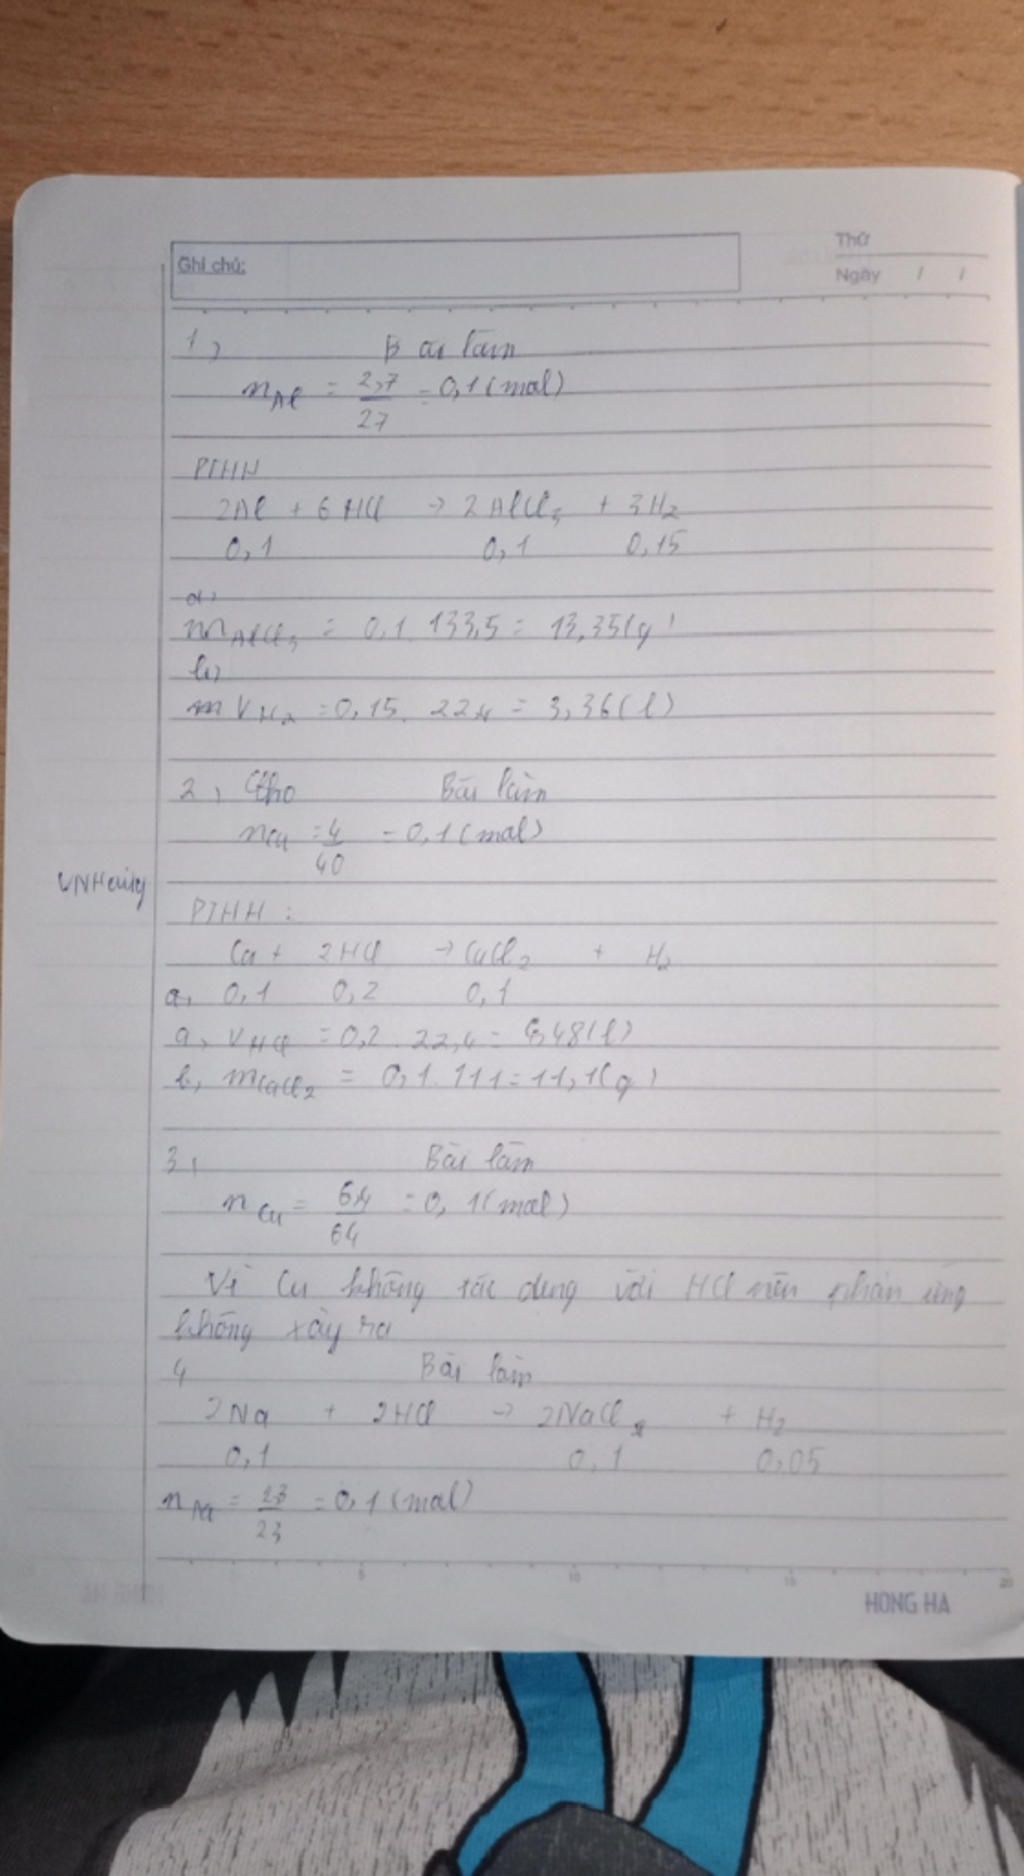 Ghi chú:
Thứ
Ngày / /
1, Bài làm
nAl = 2,7/27 = 0,1 (mol)
PTHH
2Al + 6HCl → 2AlCl3 + 3H2
0,1 0,1 0,15
a,
mAlCl3 = 0,1. 133,5 = 13,35(g)
b,
VH2 = 0,15. 22,4 = 3,36(l)
2, Bài làm
nCa = 4/40 = 0,1 (mol)
PTHH:
Ca + 2HCl → CaCl2 + H2
a, 0,1 0,2 0,1
a, VHCl = 0,2. 22,4 = 4,48(l)
b, mCaCl2 = 0,1. 111 = 11,1(g)
3, Bài làm
nCu = 6,4/64 = 0,1 (mol)
Vì Cu không tác dụng với HCl nên phản ứng
không xảy ra
4 Bài làm
2Na + 2HCl → 2NaCl + H2
0,1 0,1 0,05
nNa = 2,3/23 = 0,1 (mol)
HONG HA